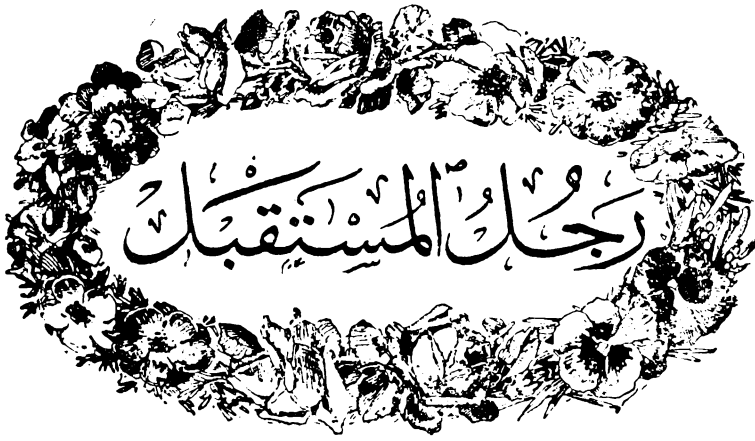 رَجُلُ الْمُسْتَقْبَل